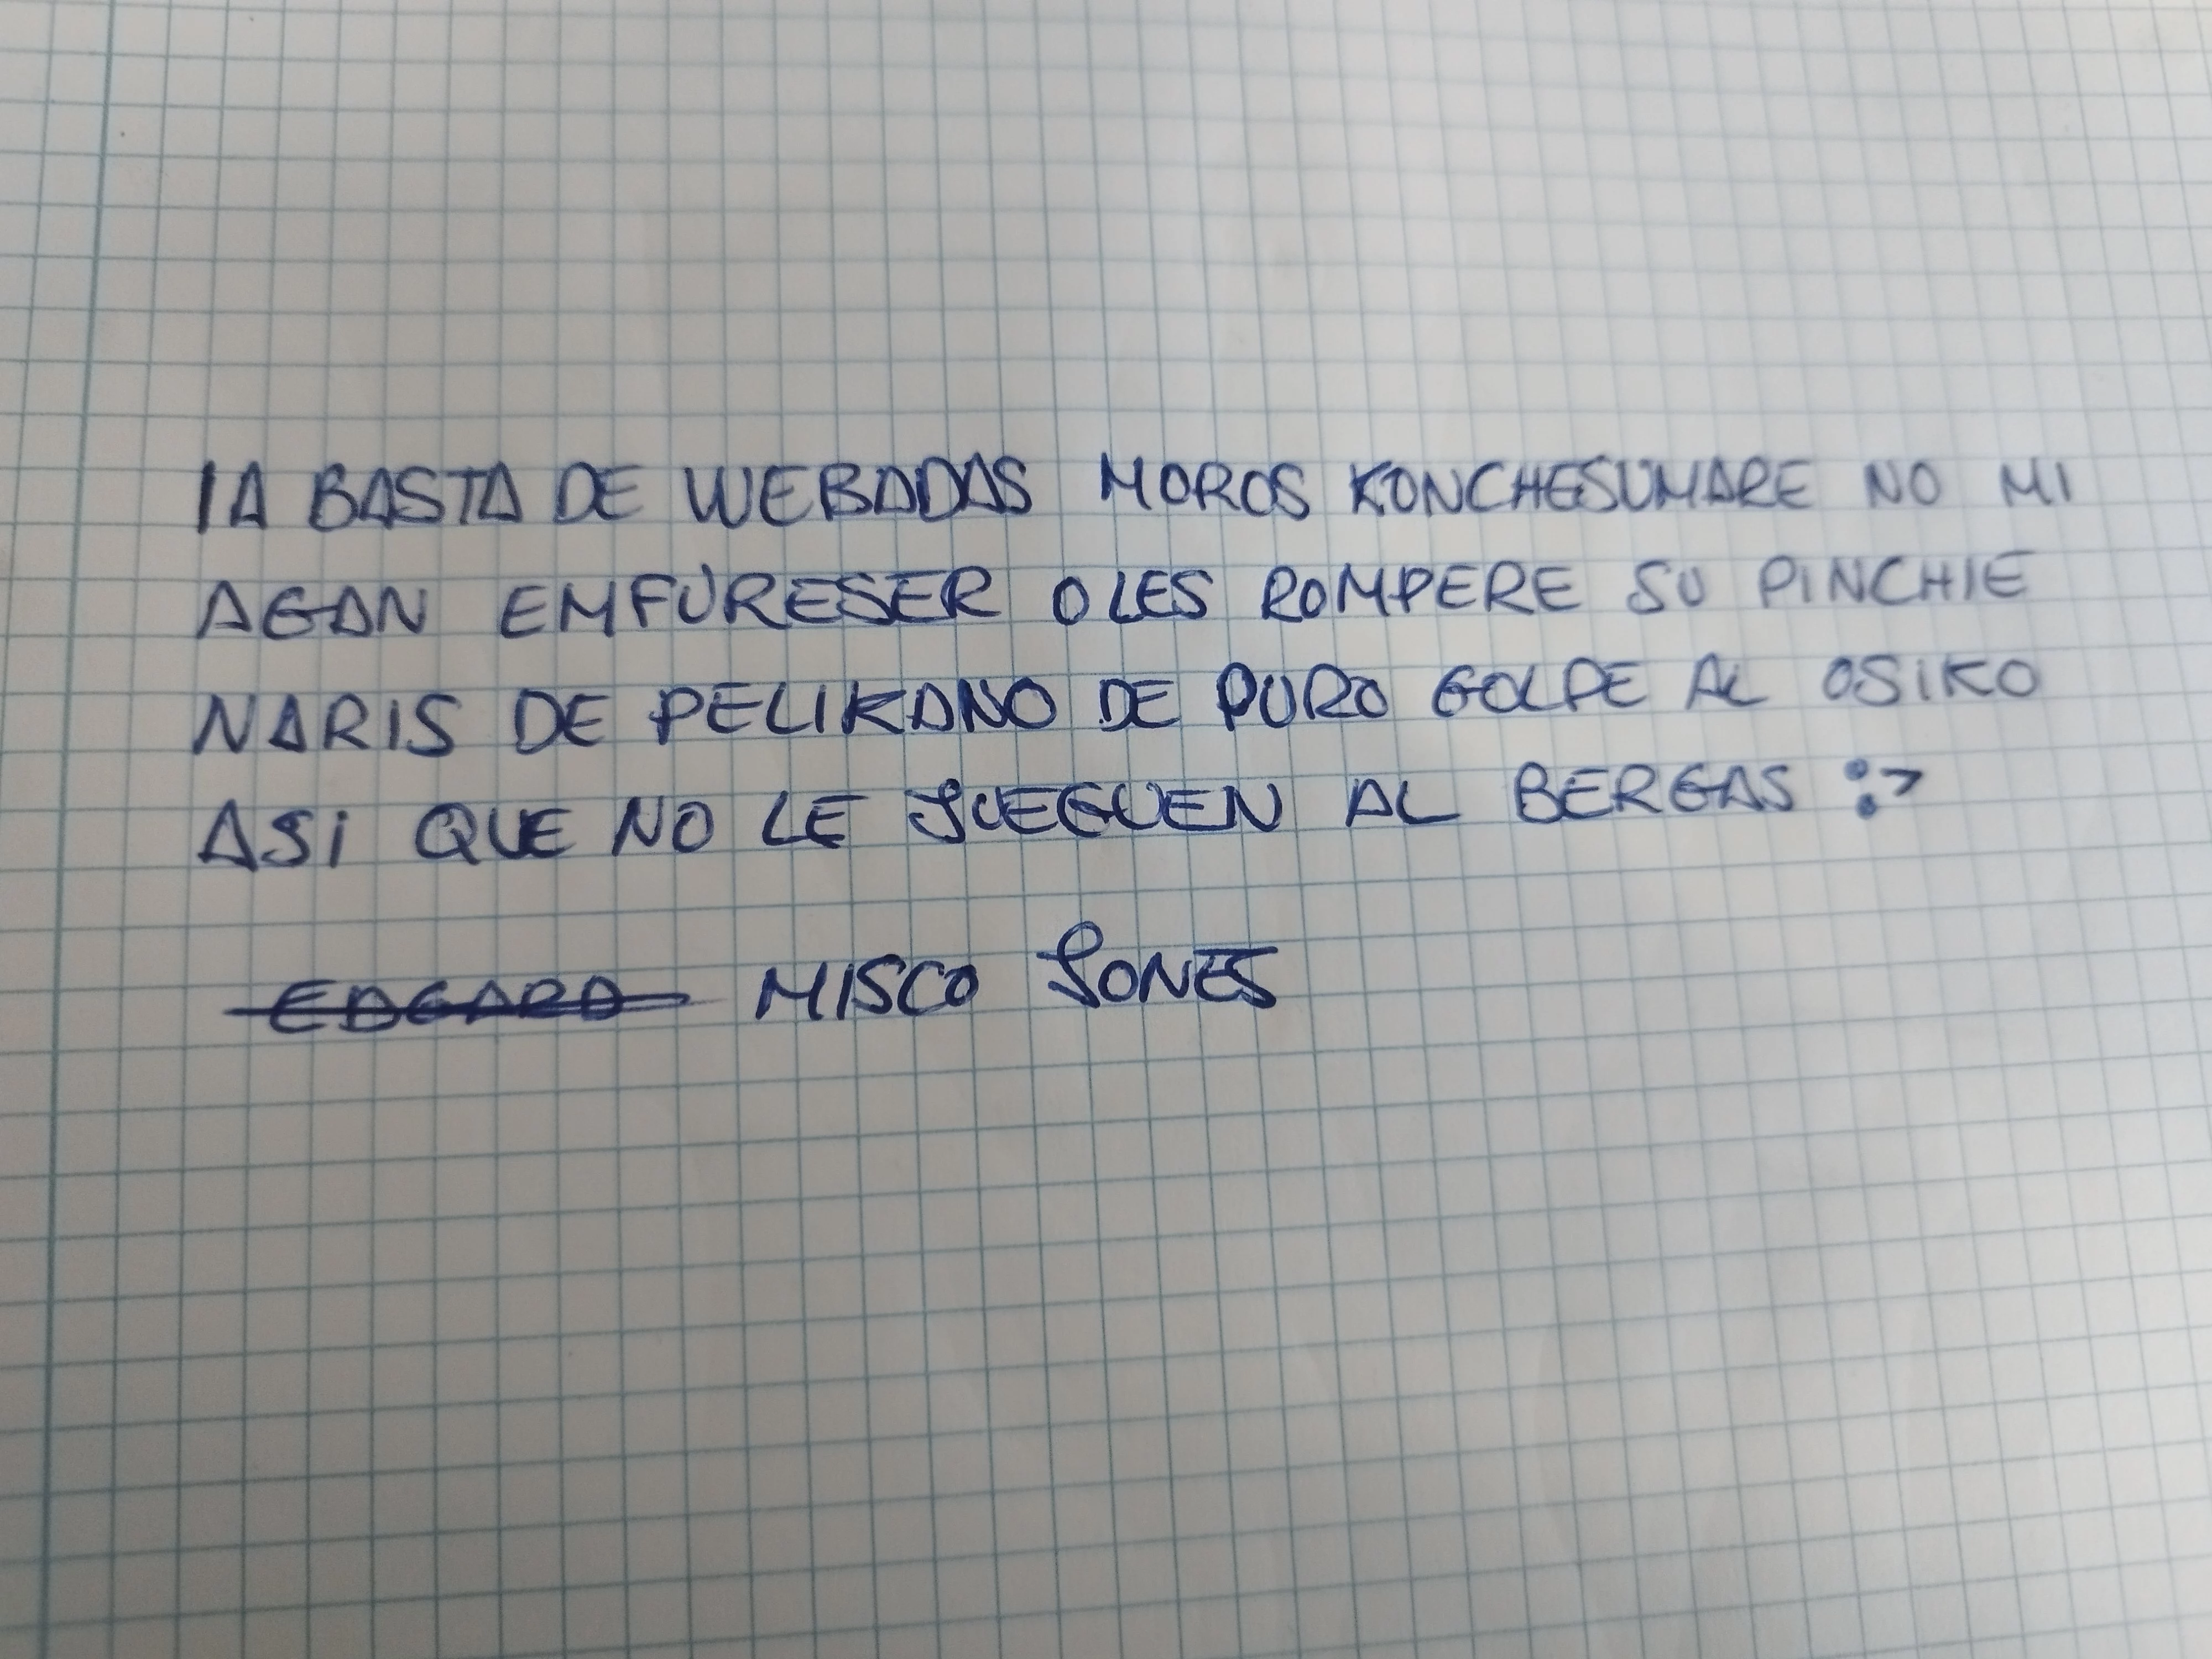 IA BASTA DE WEBADAS MOROS KONCHESUMARE NO MI
AGAN EMFURESER O LES ROMPERE SU PINCHIE
NARIS DE PELIKANO DE PURO GOLPE AL OSIKO
ASI QUE NO LE JUEGUEN AL BERGAS :>
EDGARD MISCO JONES